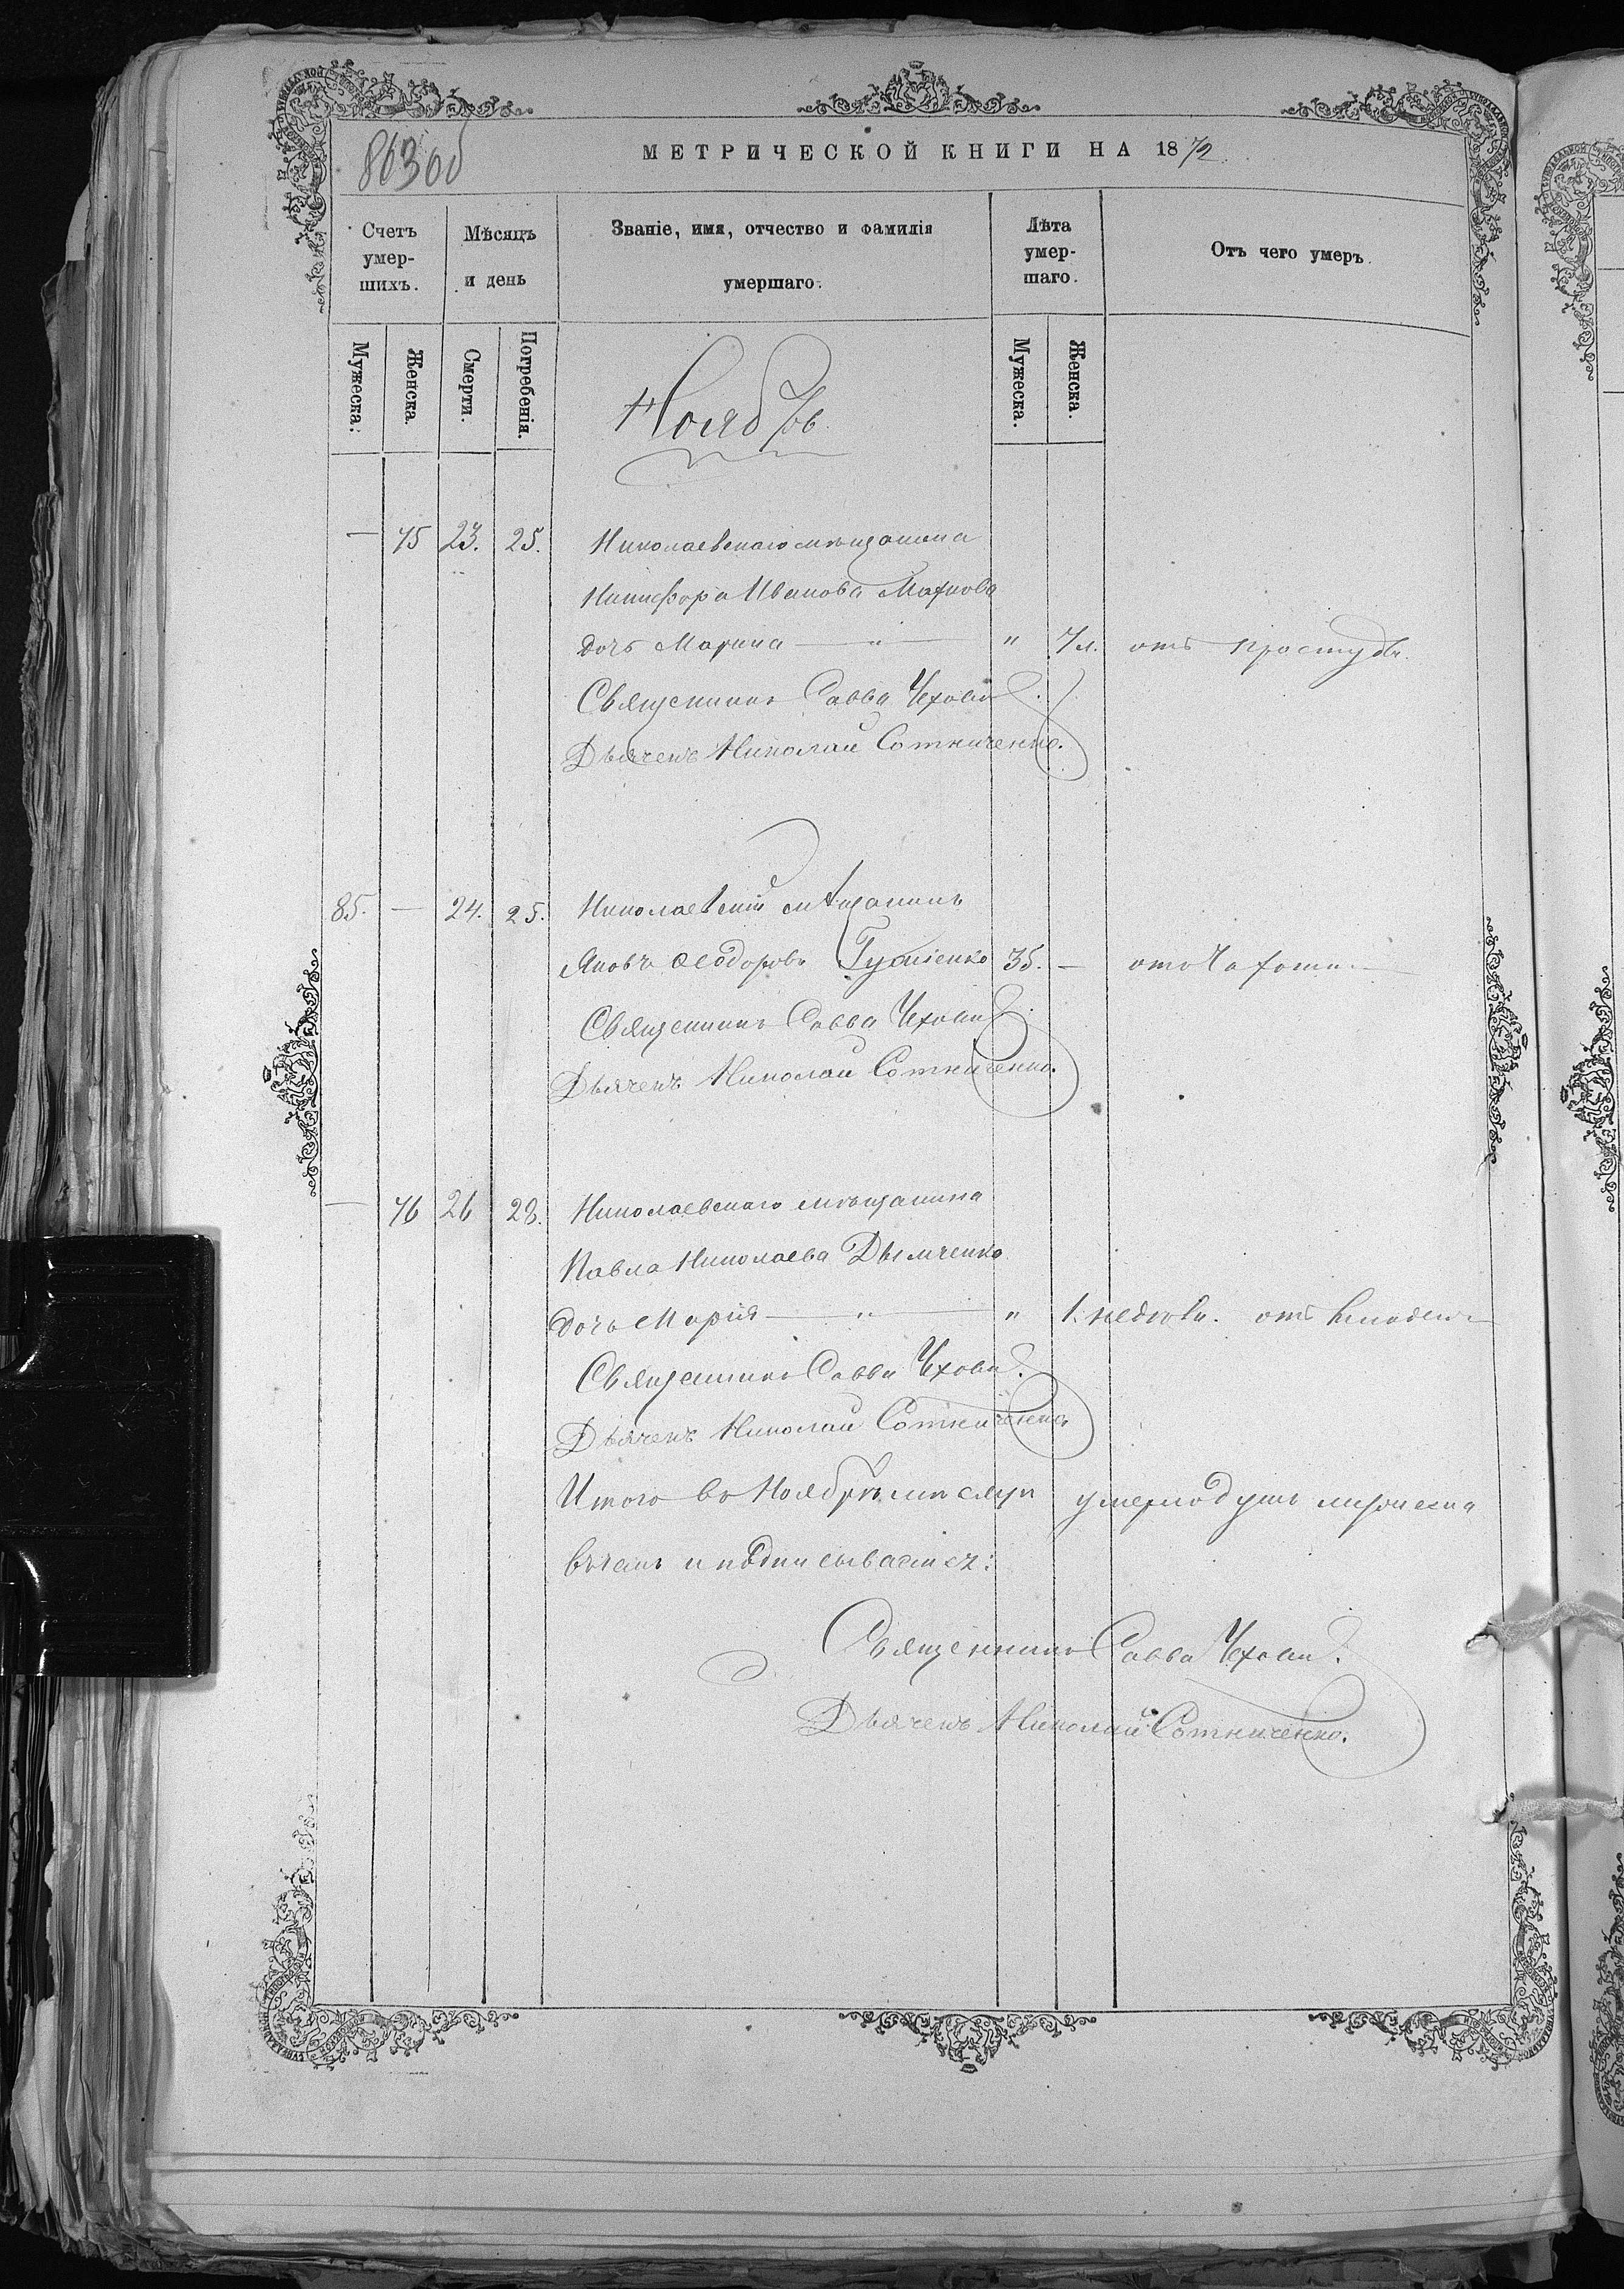 863об
МЕТРИЧЕСКОЙ КНИГИ НА 1872.
Счетъ умер-шихъ.
Мѣсяцъ и день
Званіе, имя, отчество и фамилія умершаго.
Лѣта умер-шаго.
Отъ чего умеръ.
Мужеска.
Женска.
Смерти.
Погребенія.
Мужеска.
Женска.
Ноябрь
— 75 23. 25. Николаевскаго мѣщанина
Никифора Иванова Махнова
дочь Марина — " — " 7 л. отъ простуды.
Священникъ Савва
Дьячекъ Николай Сотниченко.
85. — 24. 25. Николаевскій мѣщанинъ
Яковъ Ѳеодоровъ 35. — отъ чахотки
Священникъ Савва
Дьячекъ Николай Сотниченко.
— 76 26 28. Николаевскаго мѣщанина
Павла Николаева Дымченко
дочь Марія — " — " 1. недѣли. отъ
Священникъ Савва
Дьячекъ Николай Сотниченко
Итого въ Ноябрѣ мѣсяцѣ умерло душъ
въ чемъ и подписываемся:
Священникъ Савва
Дьячекъ Николай Сотниченко.